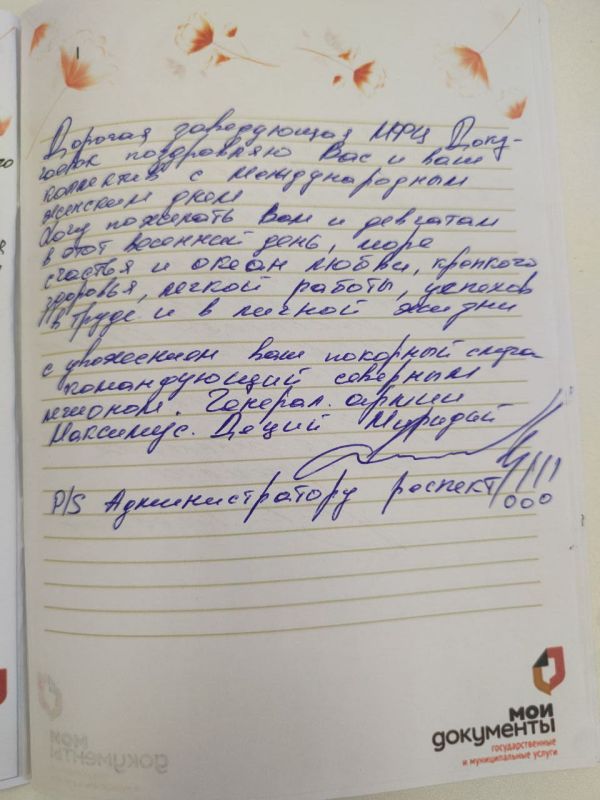 Дорогая заведующая МФЦ
поздравляю Вас и ваш
коллектив с международным
женским днем
Хочу пожелать Вам и девчатам
в этот весенний день, море
счастья и океан любви, крепкого
здоровья, легкой работы, успехов
в труде и в личной жизни
с уважением ваш покорный слуга
командующий северным
легионом. Генерал. армии
Максимус. Деций Меридий
P/S Администратору респект!!!!
мои
документы
государственные
и муниципальные услуги